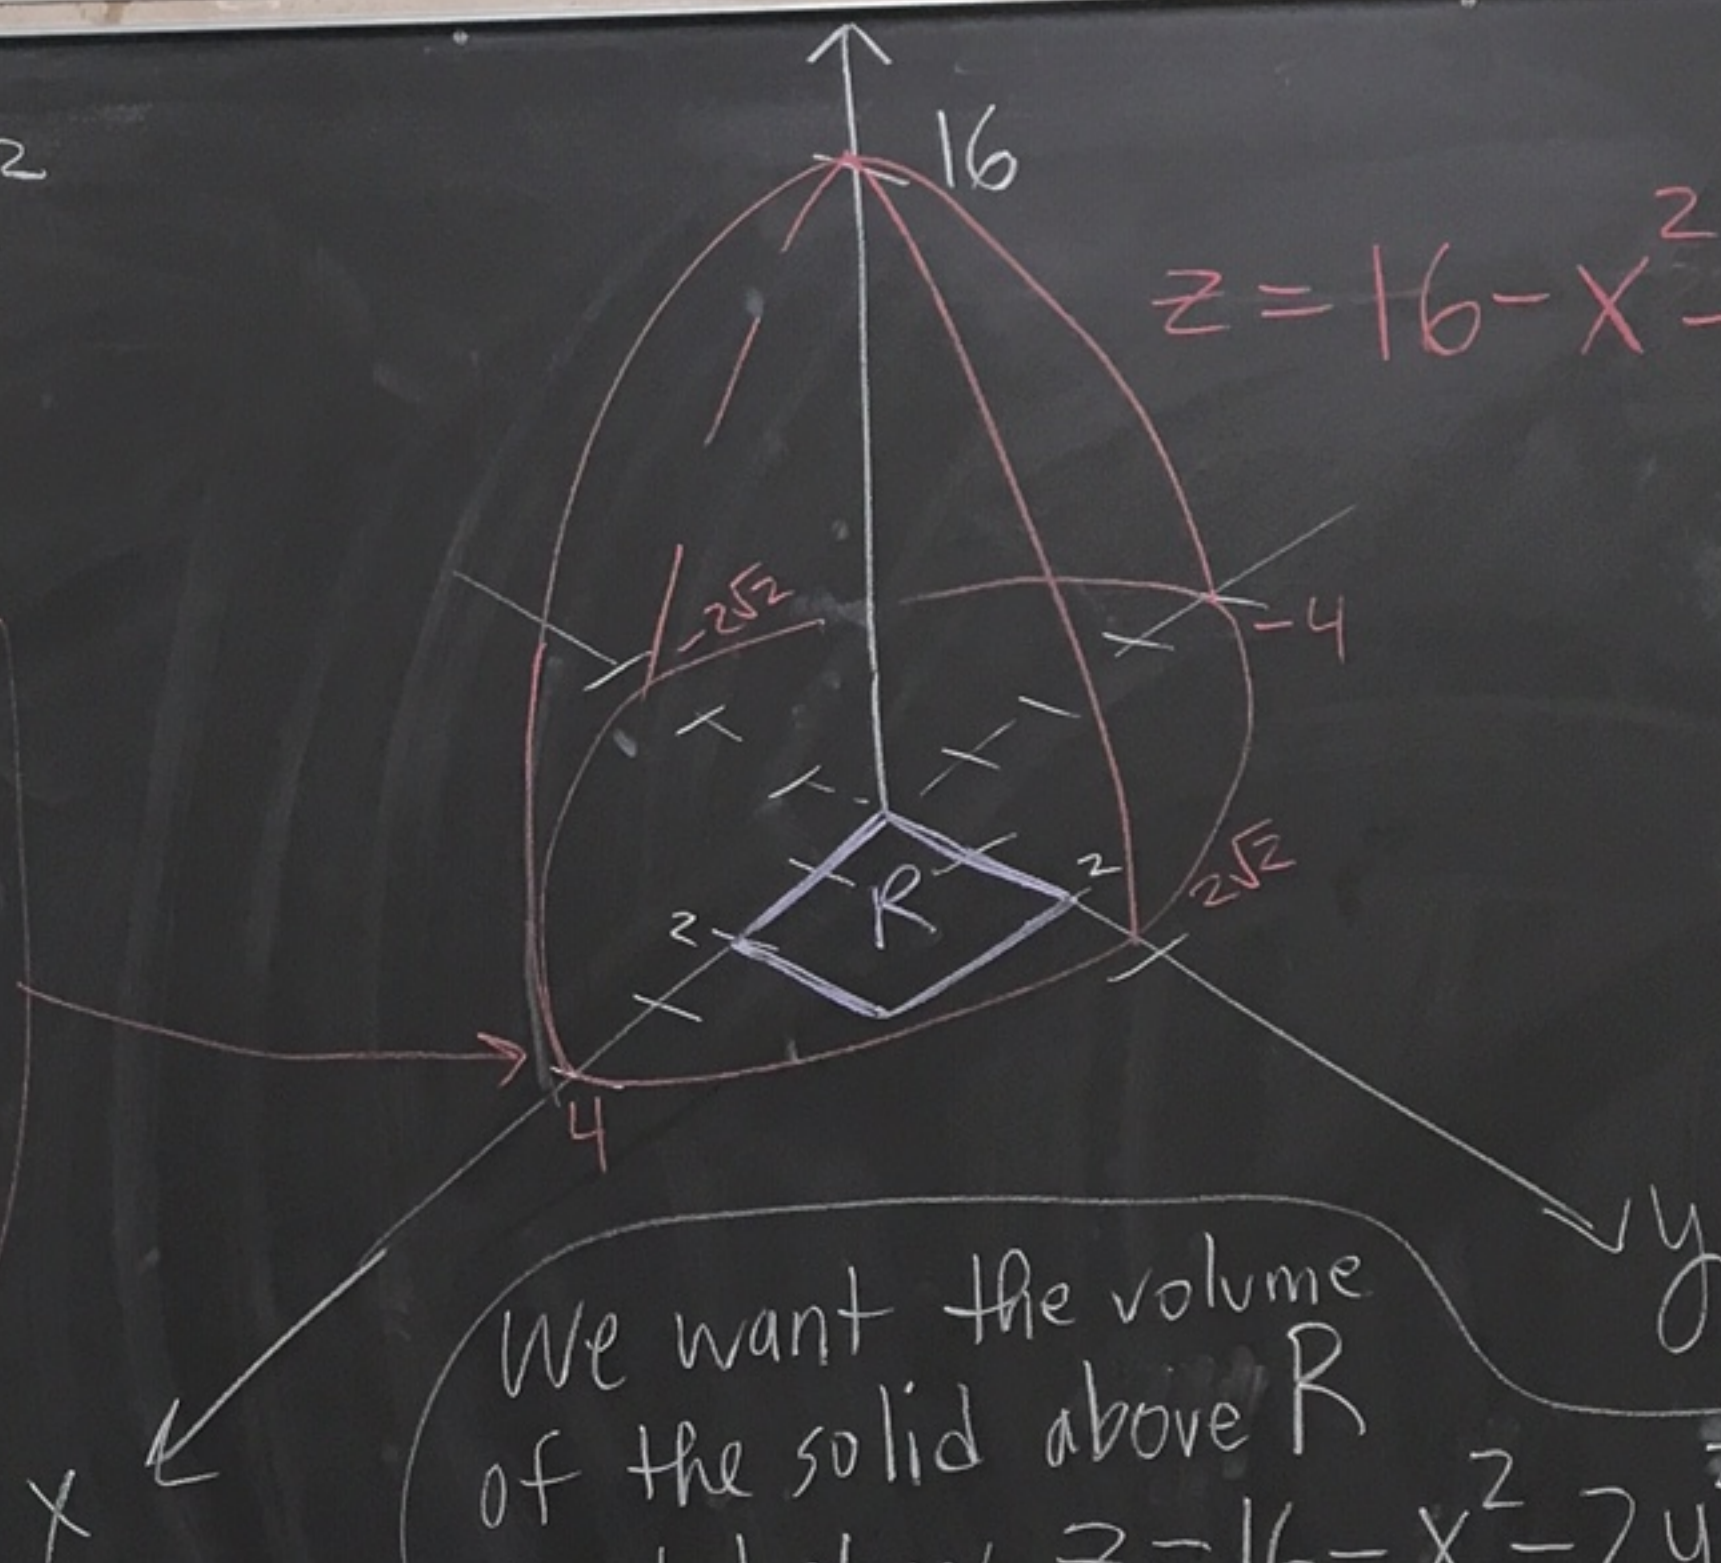 2
16
z = 16 - x² -
-2√2
-4
2
R
2√2
2
4
y
We want the volume
of the solid above R
x
z = 16 - x² - 2y²